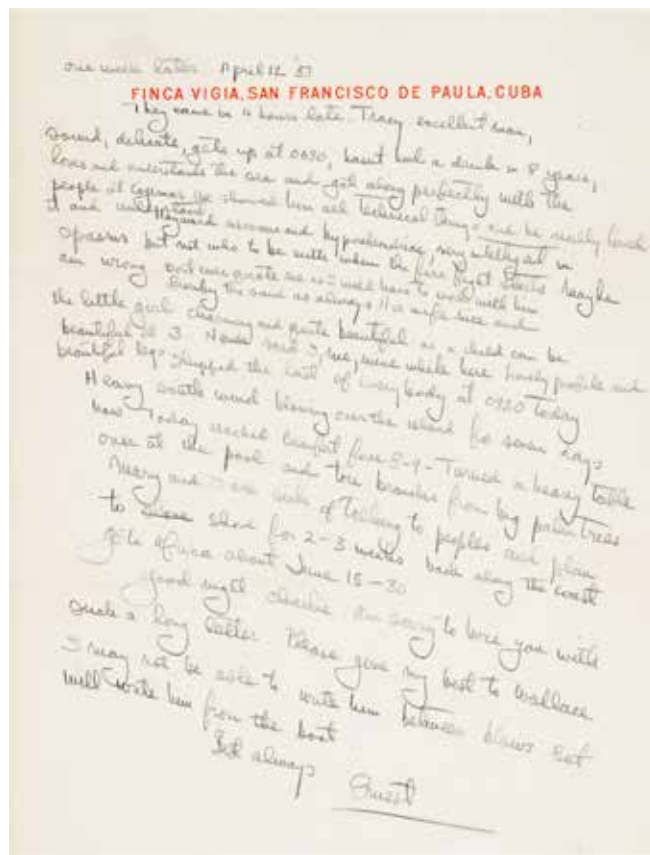 one week later April 12 '53
FINCA VIGIA, SAN FRANCISCO DE PAULA, CUBA
They came in 4 hours late. Tracy excellent man,
sound, delicate, gets up at 0630, hasnt had a drink in 8 years,
loves and understands the sea and got along perfectly with the
people at Cojimar. We showed him all technical things and he really loved
it and understood. Hayward nervous and hypertensive, very intelligent in
spasms but not who to be with when the fire fight starts. Maybe
am wrong dont ever quote me as I will have to work with him
the same as always His wife nice and
the little girl charming and quite beautiful as a child can be
beautiful at 3. me, while here lovely profile and
beautiful legs Shipped the last of everybody at 0920 today
Heavy south wind blowing over the island for seven days
now Today reached Beaufort force 8-9 - Turned a heavy table
over at the pool and tore branches from big palm trees
Mary and I are sick of talking to peoples and plan
to shove for 2-3 weeks down along the coast
go to Africa about June 15-30
Good night Charlie am sorry to bore you with
such a long letter Please give my best to Wallace
I may not be able to write him between blows but
will write him from the boat
Best always
Ernest